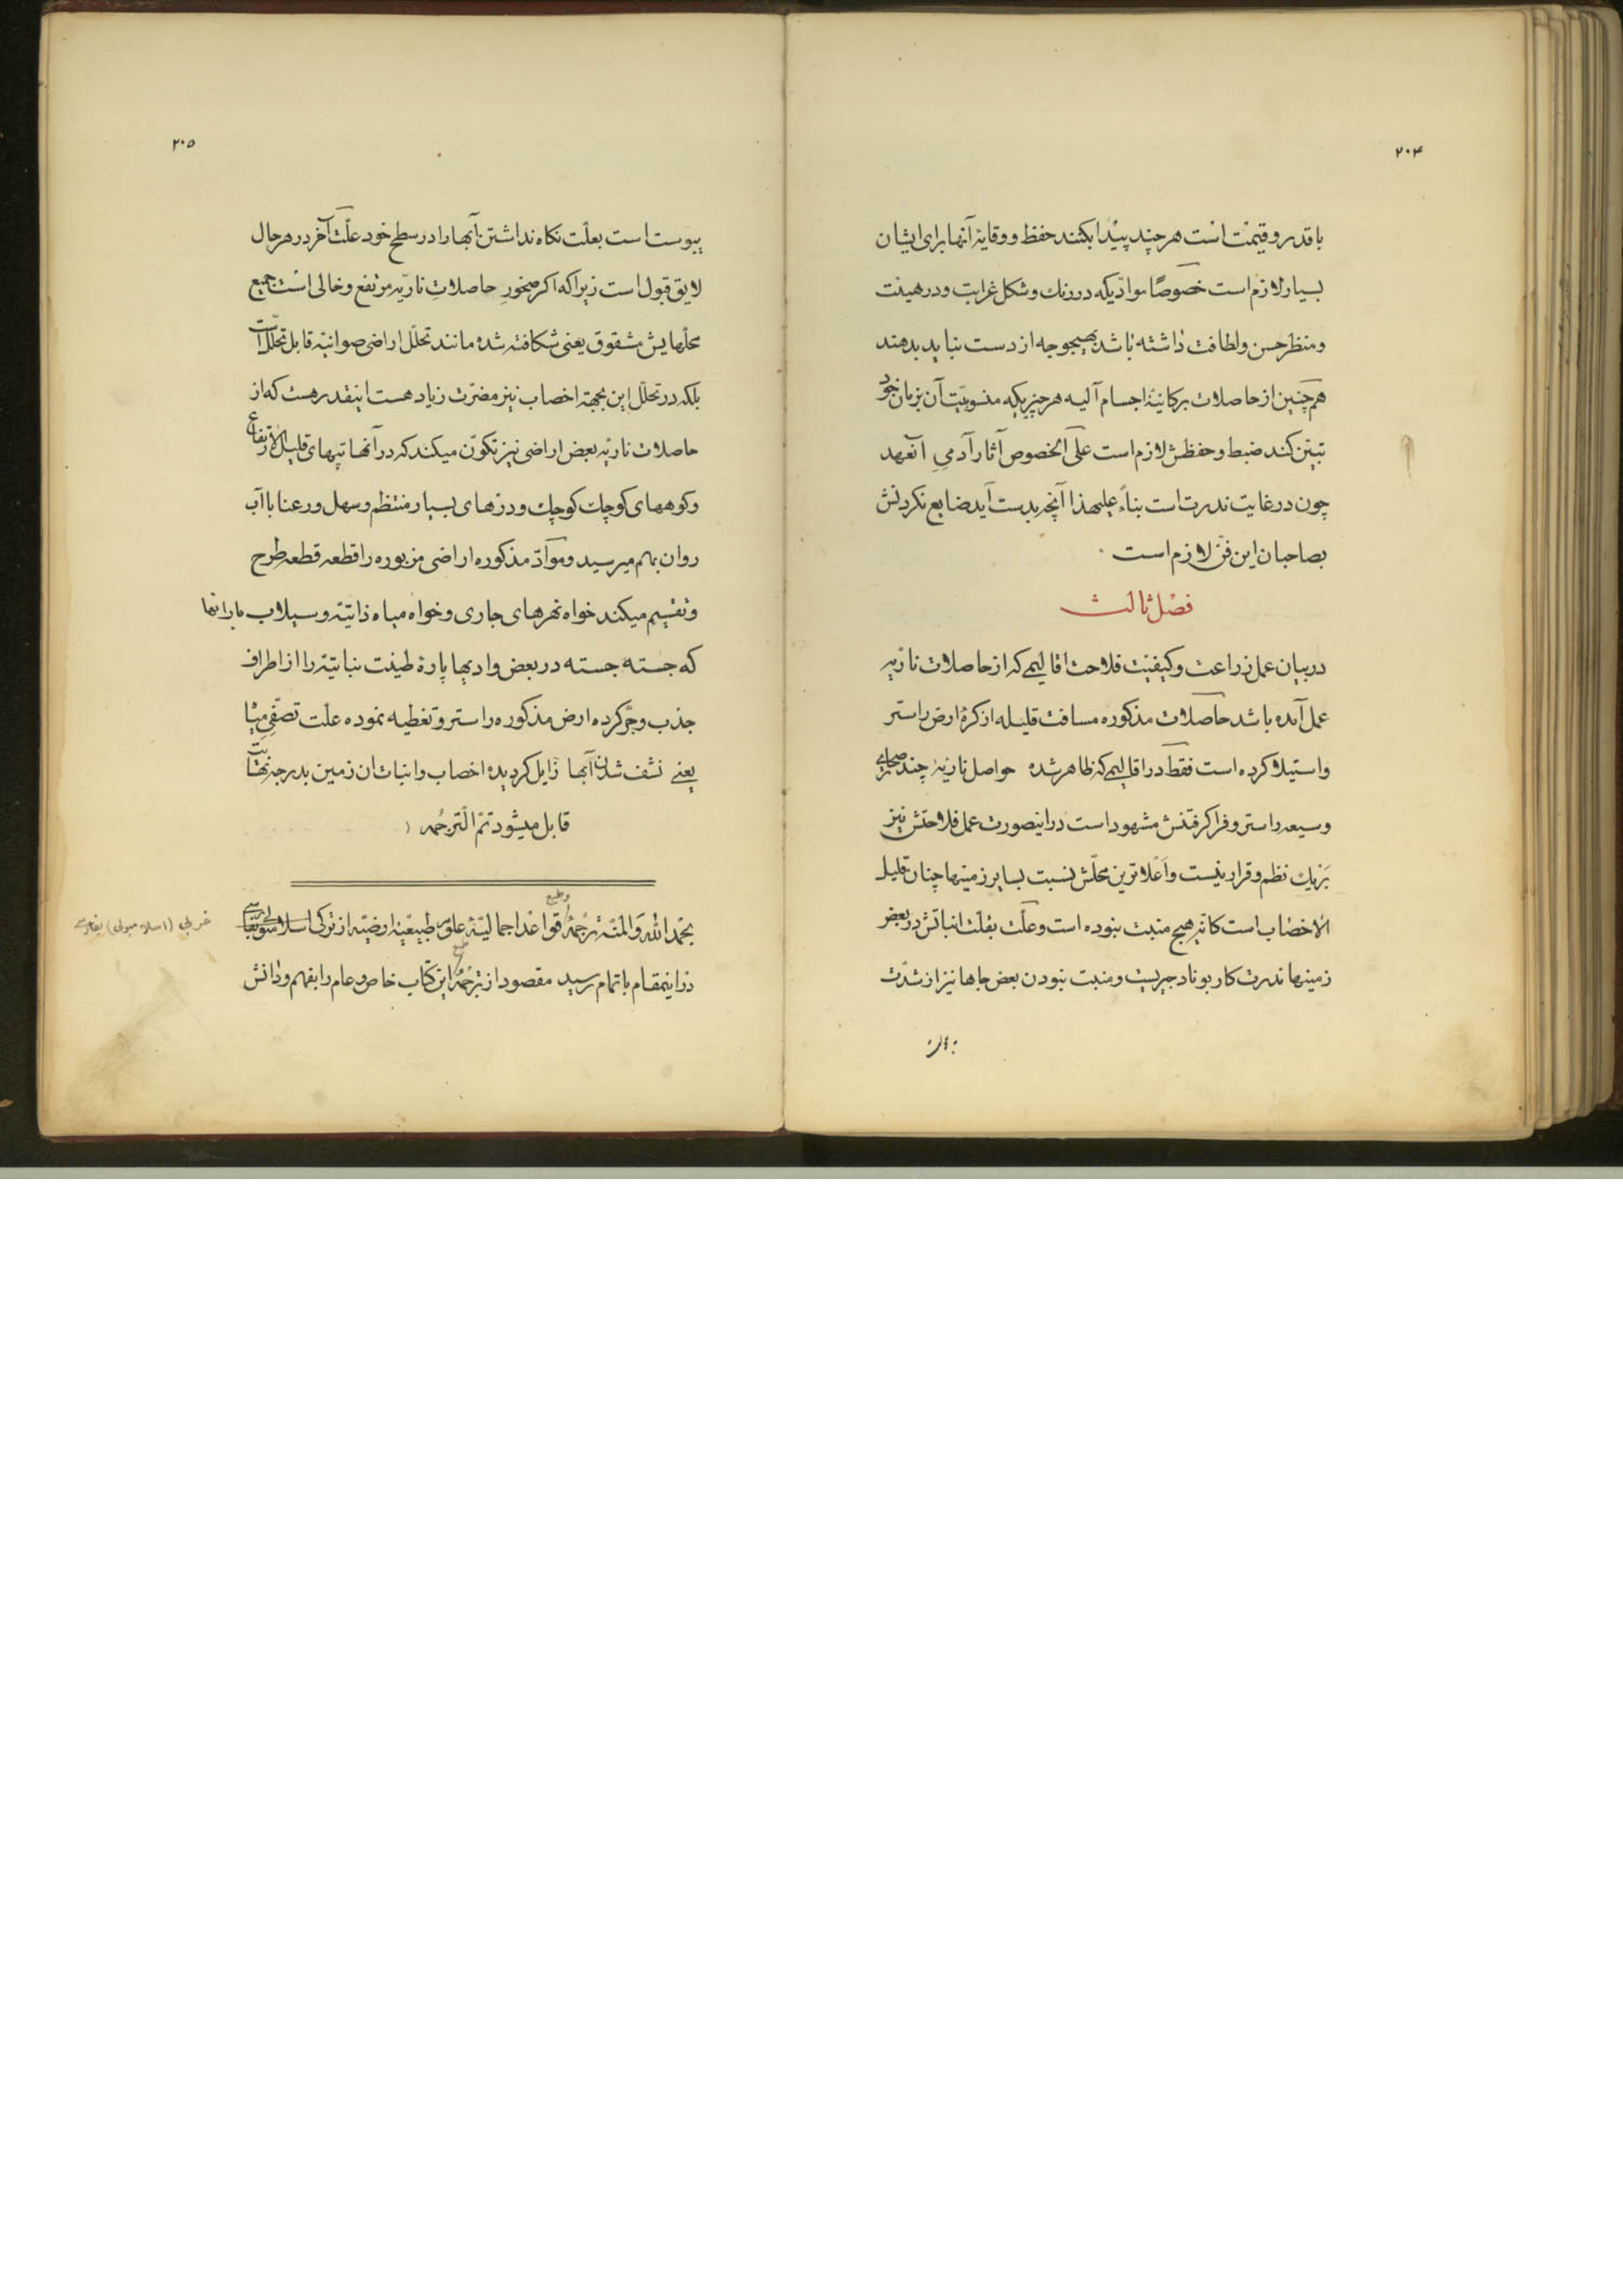 ۲۰۴
باقدر و قیمت است هر چند پیدا بکنند حفظ و وقایهٔ آنها برای ایشان
بسیار لازم است خصوصًا موادّیکه در رنك و شکل غرابت و در هیئت
و منظر حسن و لطافت داشته باشد بهیچوجه از دست نباید بدهند
همچنین از حاصلات برکانیهٔ اجسام آلیه هر چیزیکه منسوبیّت آن بزمان خود
تبیّن کند ضبط و حفظش لازم است علی الخصوص آثار آدمیِ آنعهد
چون در غایت ندرت است بناءً علیهذا آنچه بدست آید ضایع نکردنش
بصاحبان این فنّ لازم است
فصل ثالث
در بیان عمل زراعت و کیفیّت فلاحت اقالیمی که از حاصلات ناریه
عمل آمده باشد حاصلات مذکوره مسافت قلیله از کرهٔ ارض را ستر
و استیلا کرده است فقط در اقالیمی که ظاهر شده حواصل ناریه چند صحرای
وسیعه را ستر و فرا کرفتنش مشهود است در اینصورت عمل فلاحتش نیز
بر یك نظم و قرار نیست و اعلاترین محلّش نسبت بسایر زمینها چنان قلیل
الاخصاب است کانّه هیچ منبت نبوده است و علّت بقلّت انباتش در بعض
زمینها ندرت کاربوناد جیریست و منبت نبودن بعض جاها نیز از شدّت
۲۰۵
یبوست است بعلّت نکاه نداشتن آبها را در سطح خود علّت آخر در هر حال
لایق قبول است زیرا که اکر صخور حاصلات ناریّه مرتفع و خالی است جمیع
محلّهایش مشقوق یعنی شکافته شده مانند تحلّل اراضی صوانیّه قابل تحلّل است
بلکه در تحلّل این بجهة اخصاب نیز مضرّت زیاد هست اینقدر هست که از
حاصلات ناریّه بعض اراضی نیز تکوّن میکند که در آنها تپهای قلیل الارتفاع
و کوههای کوچك کوچك و درّهای بسیار منتظم و سهل و رعنا با آب
روان بهم میرسید و موادّ مذکوره اراضی مزبوره را قطعه قطعه طرح
و تقسیم میکند خواه نهرهای جاری و خواه میاه ذاتیّه و سیلاب بارانها
که جسته جسته در بعض وادیها پارهٔ طینت نباتیّه را از اطراف
جذب و جرّ کرده ارض مذکوره را ستر و تغطیه نموده علّت تصفّی میاه
یعنی نشف شدن آبها زایل کردیده اخصاب و انبات ان زمین بدرجه نهایت
قابل میشود تمّ الترجمه
بحمد الله و المنّه ترجمهٔ و طبع قواعد اجمالیّهٔ علوم طبیعیّهٔ ارضیّه از ترکی اسلامبولی بفارسی
غربی (اسلامبولی) بفارسی
در اینمقام باتمام رسید مقصود از ترجمهٔ طبع این کتاب خاص و عام را بفهم و دانش